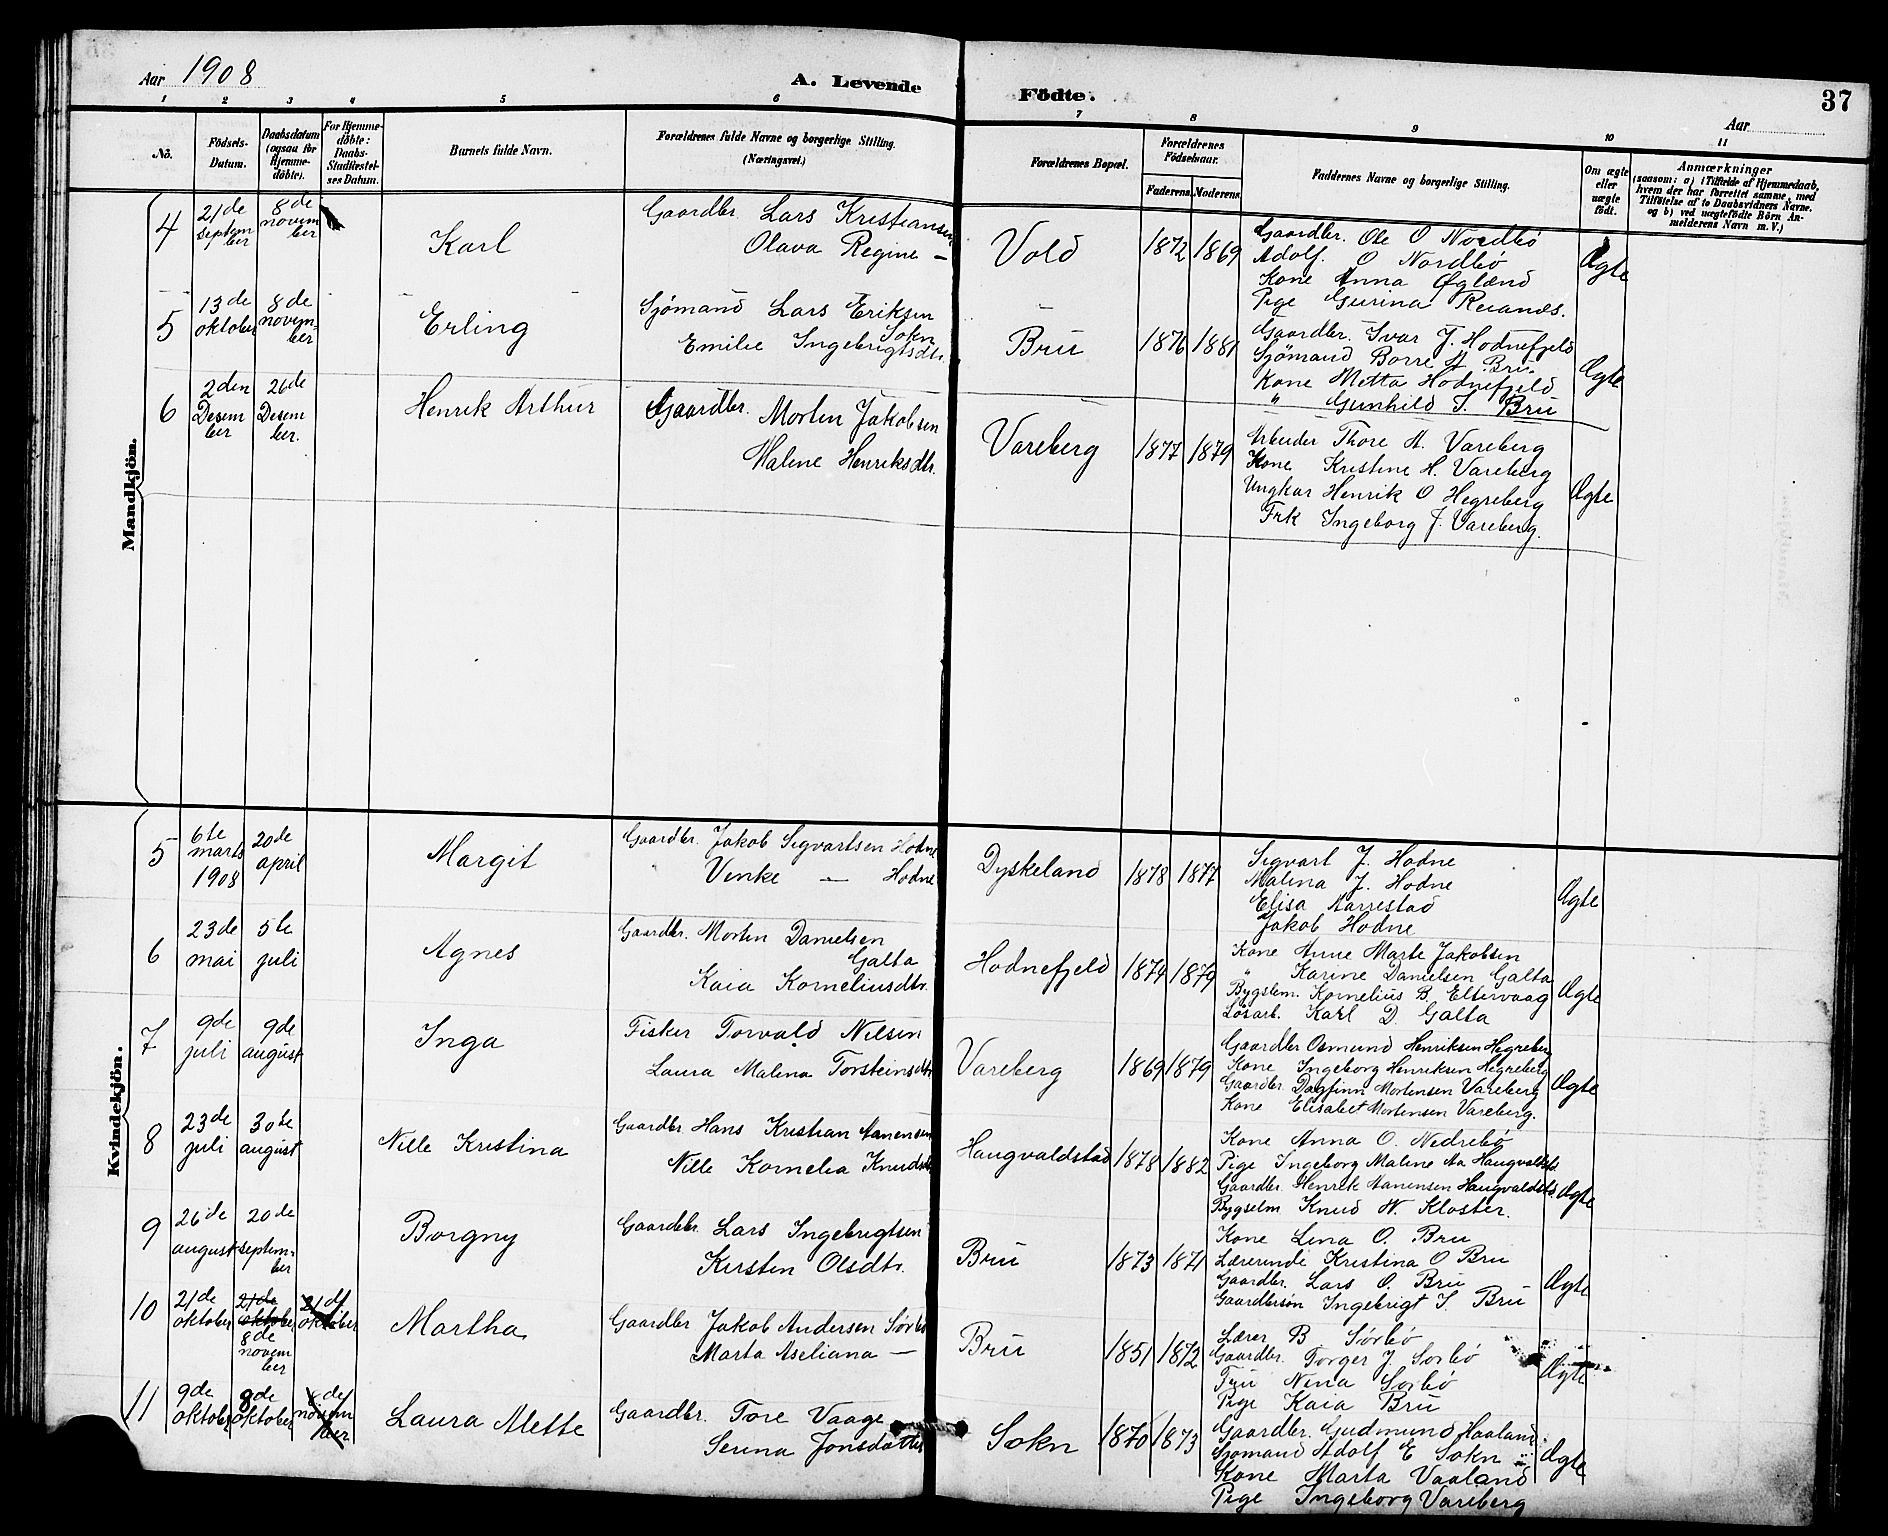 Aar 1908
A. Levende Födte.
37
Aar
1 2 3 4 5 6 7 8 9 10 11
No.
Födsels-Datum.
Daabsdatum (ogsaa for Hjemme-döbte).
For Hjemme-döbte: Daabs-Stadfæstel-ses Datum.
Barnets fulde Navn.
Forældrenes fulde Navne og borgerlige Stilling. (Næringsvei.)
Forældrenes Bopæl.
Forældrenes Födselsaar.
Faderens. Moderens.
Faddernes Navne og borgerlige Stilling.
Om ægte eller uægte födt.
Anmærkninger
(saasom: a) i Tilfælde af Hjemmedaab, hvem der har forrettet samme, med Tilföielse af to Daabsvidners Navne. og b) ved uægtefödte Börn An-melderens Navn m. V.)
Mandkjön.
4
21de september
8de november
Karl
Gaardbr. Lars Kristiansen
Olava Regine —
Vold
1872 1869
Gaardbr. Ole O Nordbø
Adolf. O Nordbø
Kone Anna Øglænd
Pige Gurina Reianes.
Ægte
5
13de oktober
8de novem-ber
Erling
Sjømand Lars Eriksen
Sokn
Emilie Ingebrigtsdtr.
Bru
1876 1881
Gaardbr. Ivar J. Hodnefjeld
Sjømand Borre A Bru
Kone Metta Hodnefjeld
" Gunhild I. Bru
Ægte
6
2den Desember
26de Desember.
Henrik Arthur
Gaardbr. Morten Jakobsen
Malene Henriksdtr.
Vareberg
1877 1879
Arbeider Thore A. Vareberg
Kone Kristine H. Vareberg
Ungkar Henrik O Hegreberg
Frk Ingeborg J. Vareberg.
Ægte
Kvindekjön.
5
6te marts 1908
20de april
Margit
Gaardbr. Jakob Sigvartsen Hodne
Venke — Hodne
Dyskeland
1878 1877
Sigvart J. Hodne
Malena J. Hodne
Elisa Aarrestad
Jakob Hodne
Ægte
6
23de mai
5te juli
Agnes
Gaardbr. Morten Danielsen
Galta
Kaia Korneliusdtr.
Hodnefjeld
1874 1879
Kone Anne Marte Jakobsen
" Karine Danielsen Galta
Bygslem. Kornelius B. Eltervaag
Løsarb. Karl D. Galta
Ægte
7
9de juli
9de august
Inga
Fisker Torvald Nilsen
Laura Malena Torsteinsdtr
Vareberg
1869 1879
Gaardbr Osmund Henriksen Hegreberg
Kone Ingeborg Henriksen Hegreberg
Gaardbr. Dagfinn Mortensen Vareberg
Kone Elisabet Mortensen Vareberg.
Ægte
8
23de juli
30te august
Nille Kristina
Gaardbr Hans Kristian Aanensen
Nille Kornelia Knudsdt
Haugvaldstad
1878 1882
Kone Anna O. Nedrebø
Pige Ingeborg Maline Aa Haugvaldst.
Gaardbr. Henrik Aanensen Haugvaldstd
Bygselm Knud N. Kloster.
Ægte
9
26de august
20de septem-ber
Borgny
Gaardbr. Lars Ingebrigtsen
Kirsten Olsdtr.
Bru
1873 1871
Kone Lina O. Bru
Lærerinde Kristina O Bru
Gaardbr. Lars O. Bru
Gaardbrsøn Ingebrigt I. Bru
Ægte
10
21de oktober
21de oktober
8de november
21de oktober
Martha
Gaardbr Jakob Andersen Sørbø
Marta Aseliana —
Bru
1851 1872
Lærer B Sørbø
Gaardbr. Torger J Sørbø
Fru Nina Sørbø
Pige Kaia Bru
Ægte
11
9de oktober
8de oktober
8de november
Laura Alette
Gaardbr. Tore Vaage
Serina Jonsdatter
Sokn
1870 1873
Gaardbr. Gudmund Haaland
Sjømand Adolf E Sokn
Kone Marta Vaaland
Pige Ingeborg Vareberg
Ægte